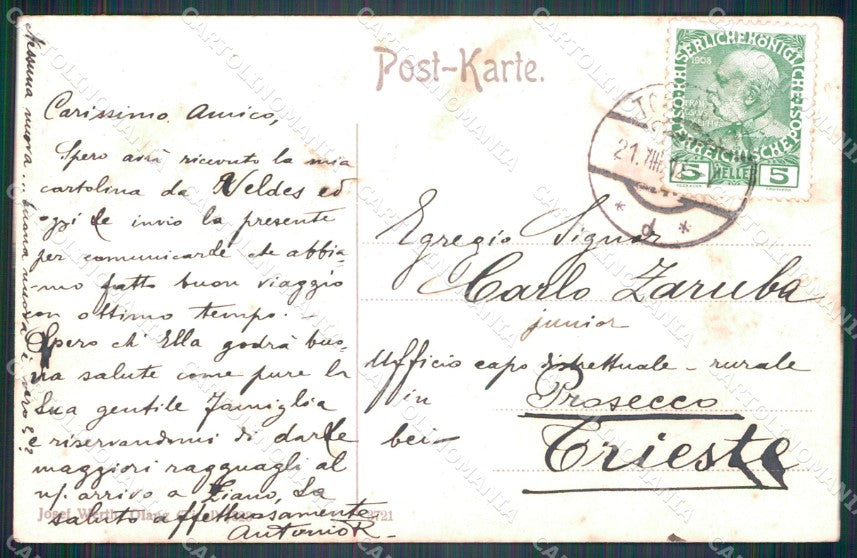 Post-Karte.
Nessuna nuova... buona nuova è vero?
Carissimo Amico,
Spero avrà ricevuto la mia
cartolina da Veldes ed
oggi Le invio la presente
per comunicarle che abbia-
mo fatto buon viaggio
con ottimo tempo. -
Spero ch'Ella godrà buo-
na salute come pure la
Sua gentile Famiglia
e riservandomi di darLe
maggiori ragguagli al
arrivo a La
saluto affettuosamente
Antonio R.-
Josef Werthe
2721
1908
5 HELLER 5
21.VIII.12
* d *
Egregio Signor
Carlo Zaruba
junior
Ufficio capo distrettuale - rurale
in Prosecco
bei - Trieste
CARTOLINOMANIA